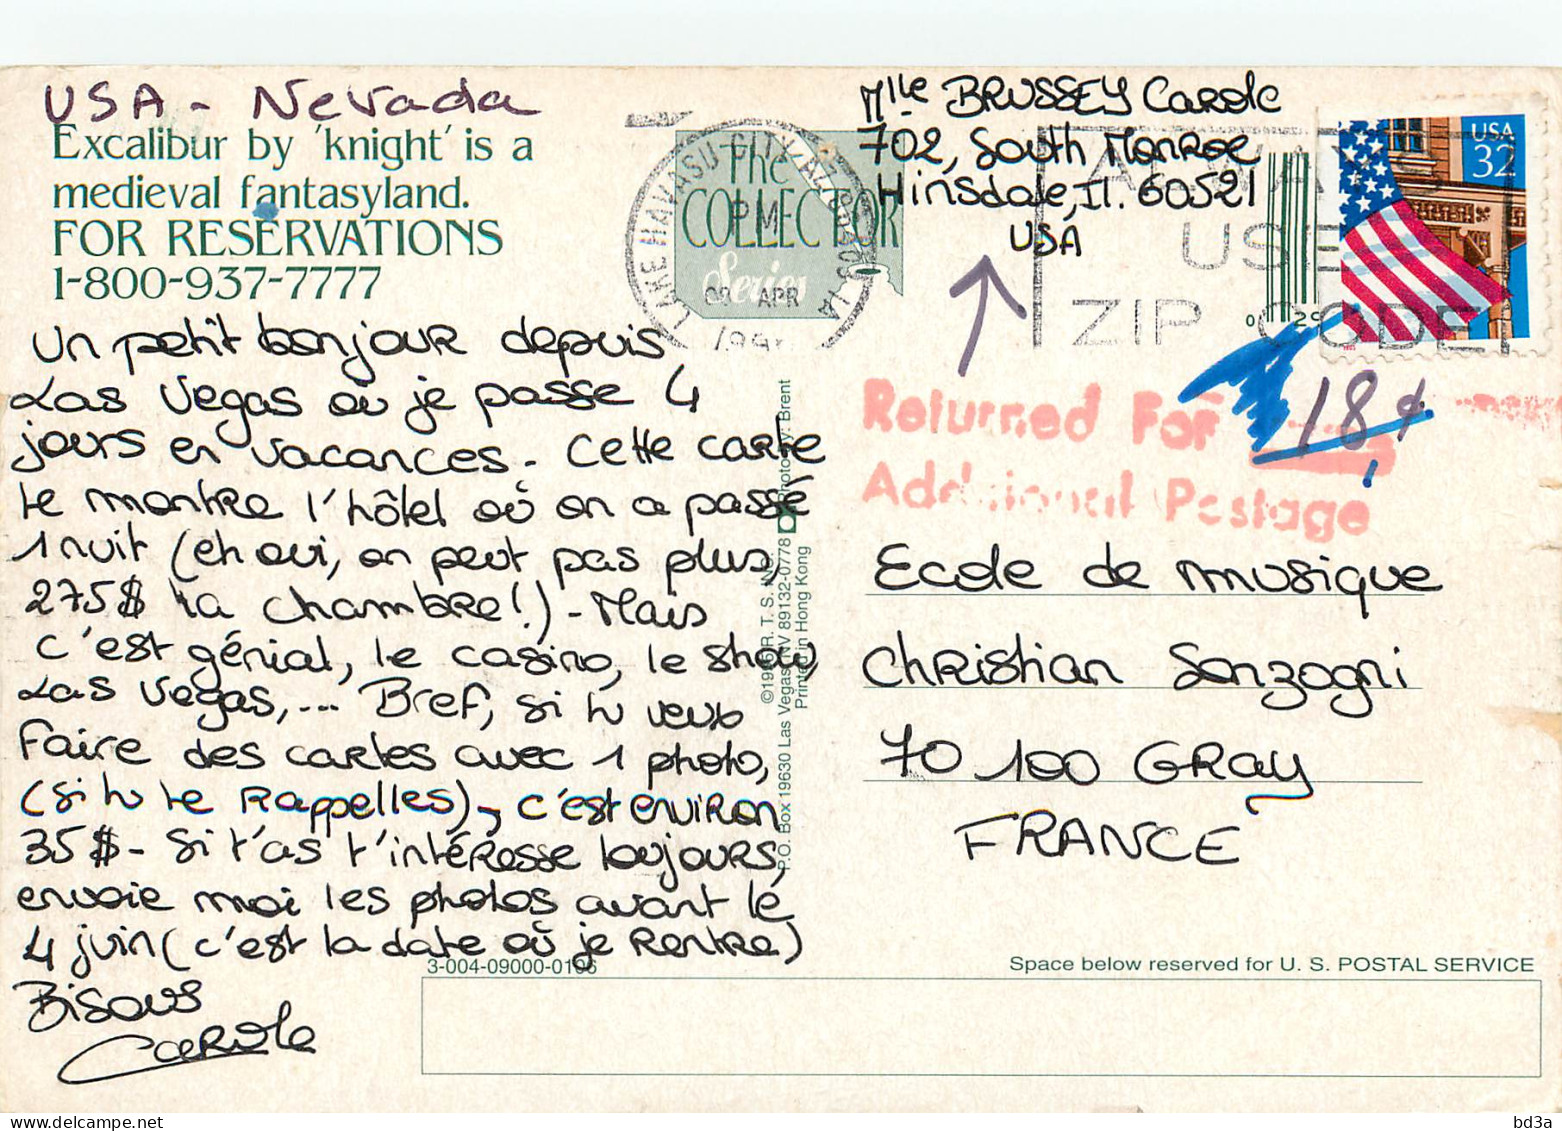 USA - Nevada
Excalibur by 'knight' is a
medieval fantasyland.
FOR RESERVATIONS
1-800-937-7777
un petit bonjour depuis
Las Vegas où je passe 4
jours en vacances - Cette carte
te montre l'hôtel où on a passé
1 nuit (eh oui, on peut pas plus,
275$ la chambre!) - Mais
c'est génial, le casino, le show,
Las Vegas,... Bref, si tu veux
faire des cartes avec 1 photo,
(si tu te rappelles), c'est environ
35$ - Si t'as t'intéresse toujours,
envoie moi les photos avant le
4 juin (c'est la date où je rentre)
Bisous
Carole
3-004-09000-0106
The
COLLECTOR
Series
LAKE HAVASU CITY, AZ
PM
APR
P.O. Box 19630 Las Vegas, NV 89132-0778 Photo by: Brent
Printed in Hong Kong
Mlle BRUSSEY Carole
702, South Monroe
Hinsdale, Il. 60521
USA
ALWAYS
USE
ZIP CODE
USA
32
18 ¢
Returned For
Additional Postage
Ecole de musique
Christian Sonzogni
70 100 GRay
FRANCE
Space below reserved for U. S. POSTAL SERVICE
bd3a